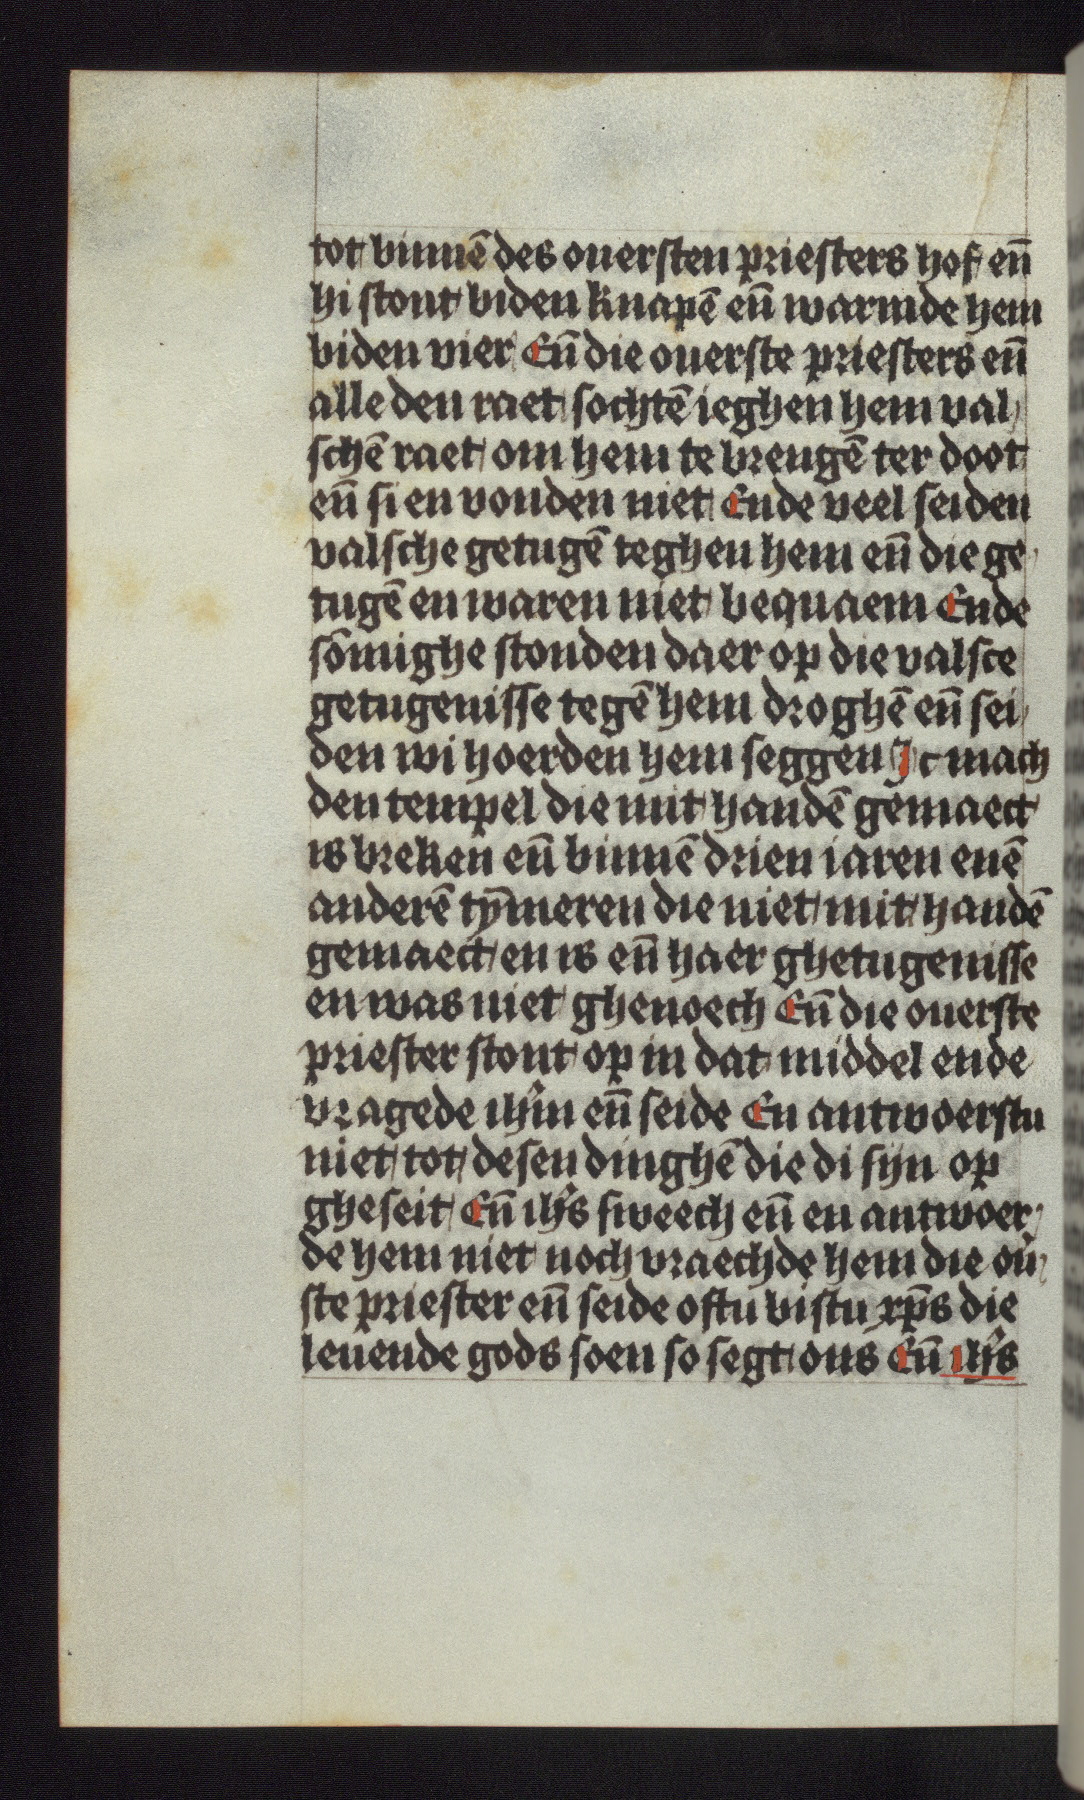 tot binnē des ouersten priesters hof en̄
hi stont biden knapē en̄ warmde hem
biden vier En̄ die ouerste priesters en̄
alle den raet sochtē ieghen hem val
schē raet om hem te brengē ter doot
en̄ si en vonden niet Ende veel seiden
valsche getugē teghen hem en̄ die ge
tugē en waren niet bequaem Ende
sōmighe stonden daer op die valsce
getugenisse tegē hem droghē en̄ sei
den wi hoerden hem seggen Ic mach
den tempel die mit handē gemaect
is breken en̄ binnē drien iaren enē
anderē tȳmeren die niet mit handē
gemaect en is en̄ haer ghetugenisse
en was niet ghenoech En̄ die ouerste
priester stont op in dat middel ende
vragede ihm̄ en̄ seide En antwoerstu
niet tot desen dinghē die di sijn op
gheseit En̄ ihs̄ sweech en̄ en antwoer
de hem niet noch vraechde hem die oū
ste priester en̄ seide oftu bistu xp̄s die
leuende gods soen so segt ons En̄ ihs̄